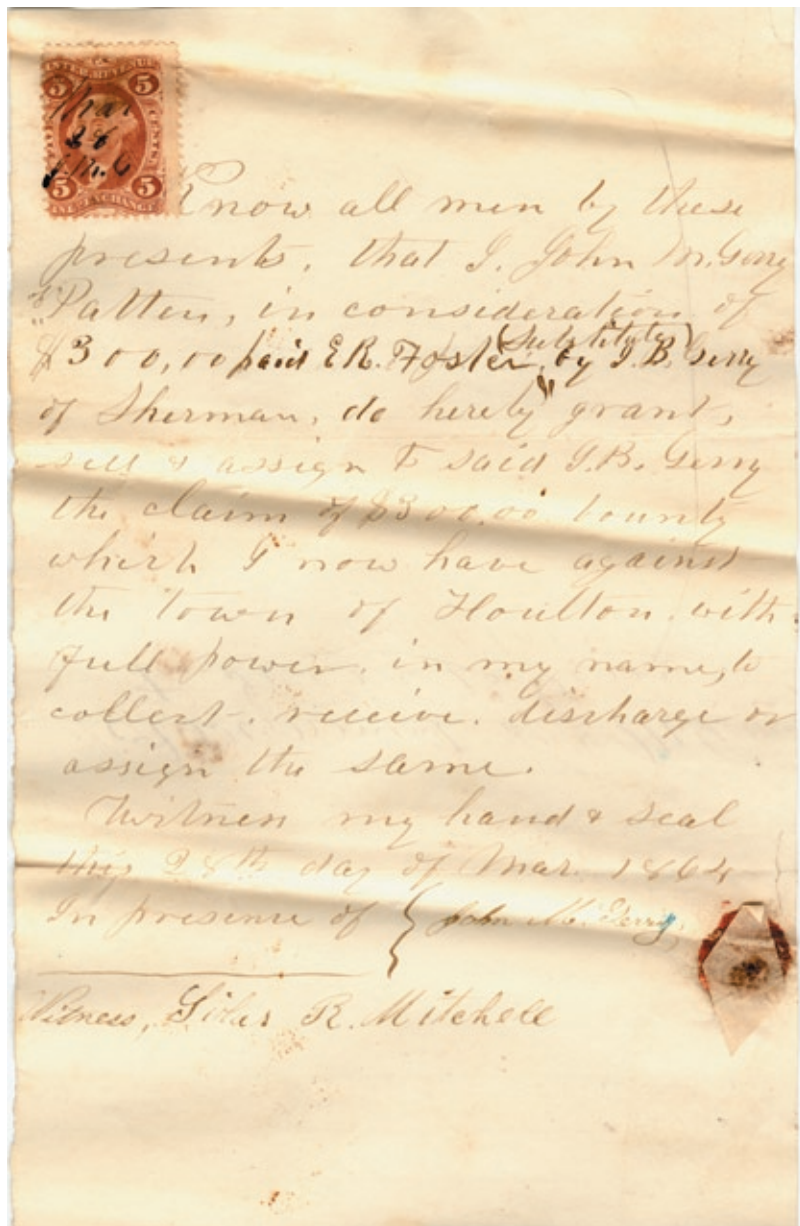 INTER. REVENUE
5 5
CENTS
Mar
28
J. M. G
5 5
INL. EXCHANGE
Know all men by these
presents, that I, John M. Gerry
of Patten, in consideration of
(Substitute)
$300,00 paid E R. Foster, by I. B. Gerry
of Sherman, do hereby grant,
sell & assign to said I. B. Gerry
the claim of $300.00 bounty
which I now have against
the town of Houlton, with
full power, in my name, to
collect, receive, discharge or
assign the same.
Witness my hand & seal
this 28th day of Mar. 1864
In presence of { John M. Gerry,
Witness, Silas R. Mitchell